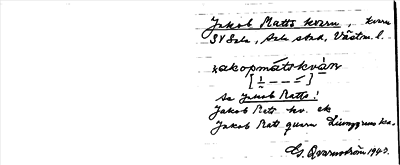 Jakob Matts kvarn, kvarn
SV Sala, Sala stad, Västm. l.
jakopmátskván
[ ̱ - - - ́ ]
Se Jakob Matts!
Jakob Mats kv. ek
Jakob Mats quarn
G. Qvarnström 1940.